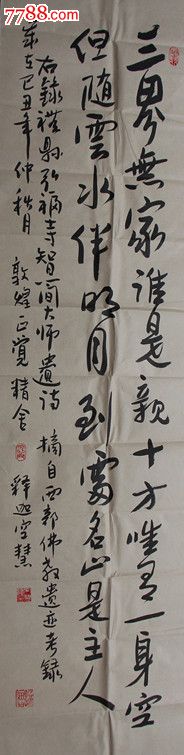 7788.com
三界無家谁是親十方唯有一身空
但随雲水伴明月到處名山是主人
右録禮縣弘福寺智一间大师遺诗 摘自西部佛教遺迹考録
歲在己丑年仲秋月 敦煌正覺精舍 释迦空慧